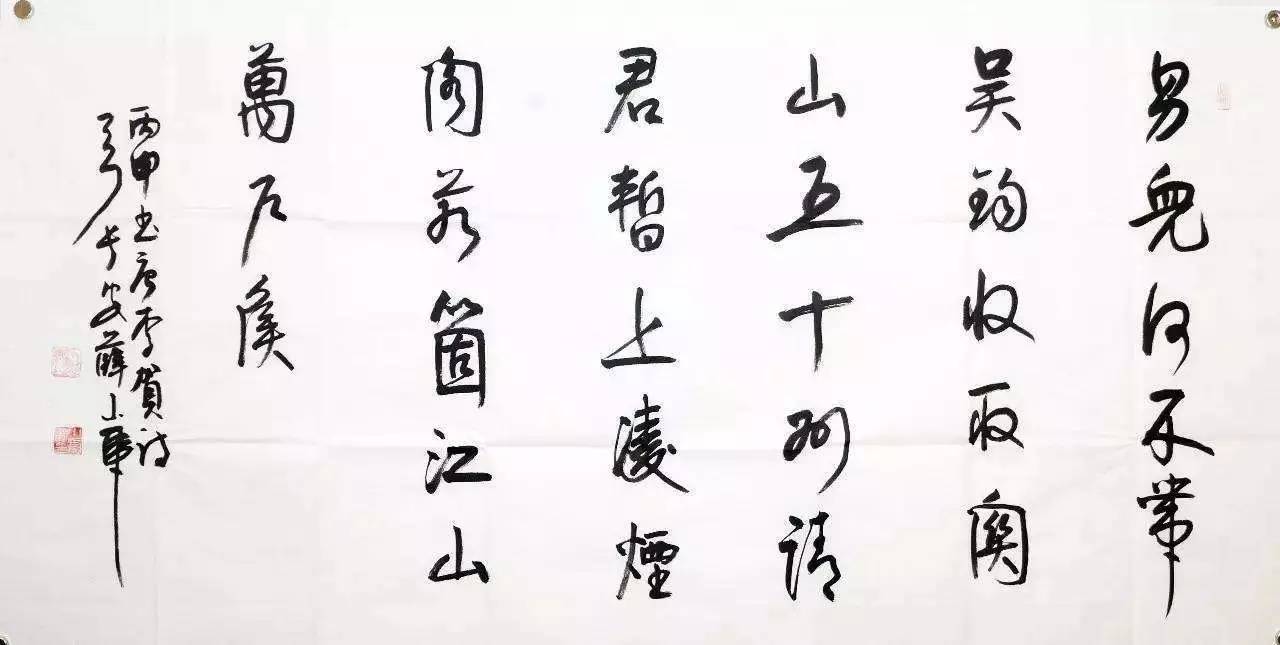 男兒何不帶
吳鈎收取關
山五十州請
君暫上淩煙
閣若箇江山
萬戶侯
丙申書唐李賀詩
長安薛小軍